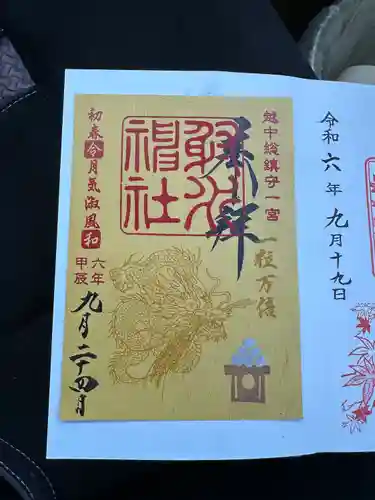 令和六年九月十九日
越中総鎮守一宮
一粒万倍
奉拝
射水神社
初春令月気淑風和
甲辰六年
九月二十四日